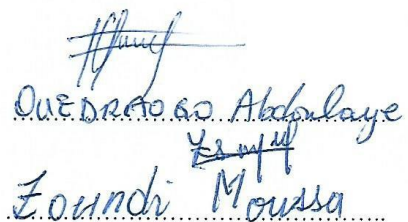 OUEDRAOGO Abdoulaye
Zoundi Moussa